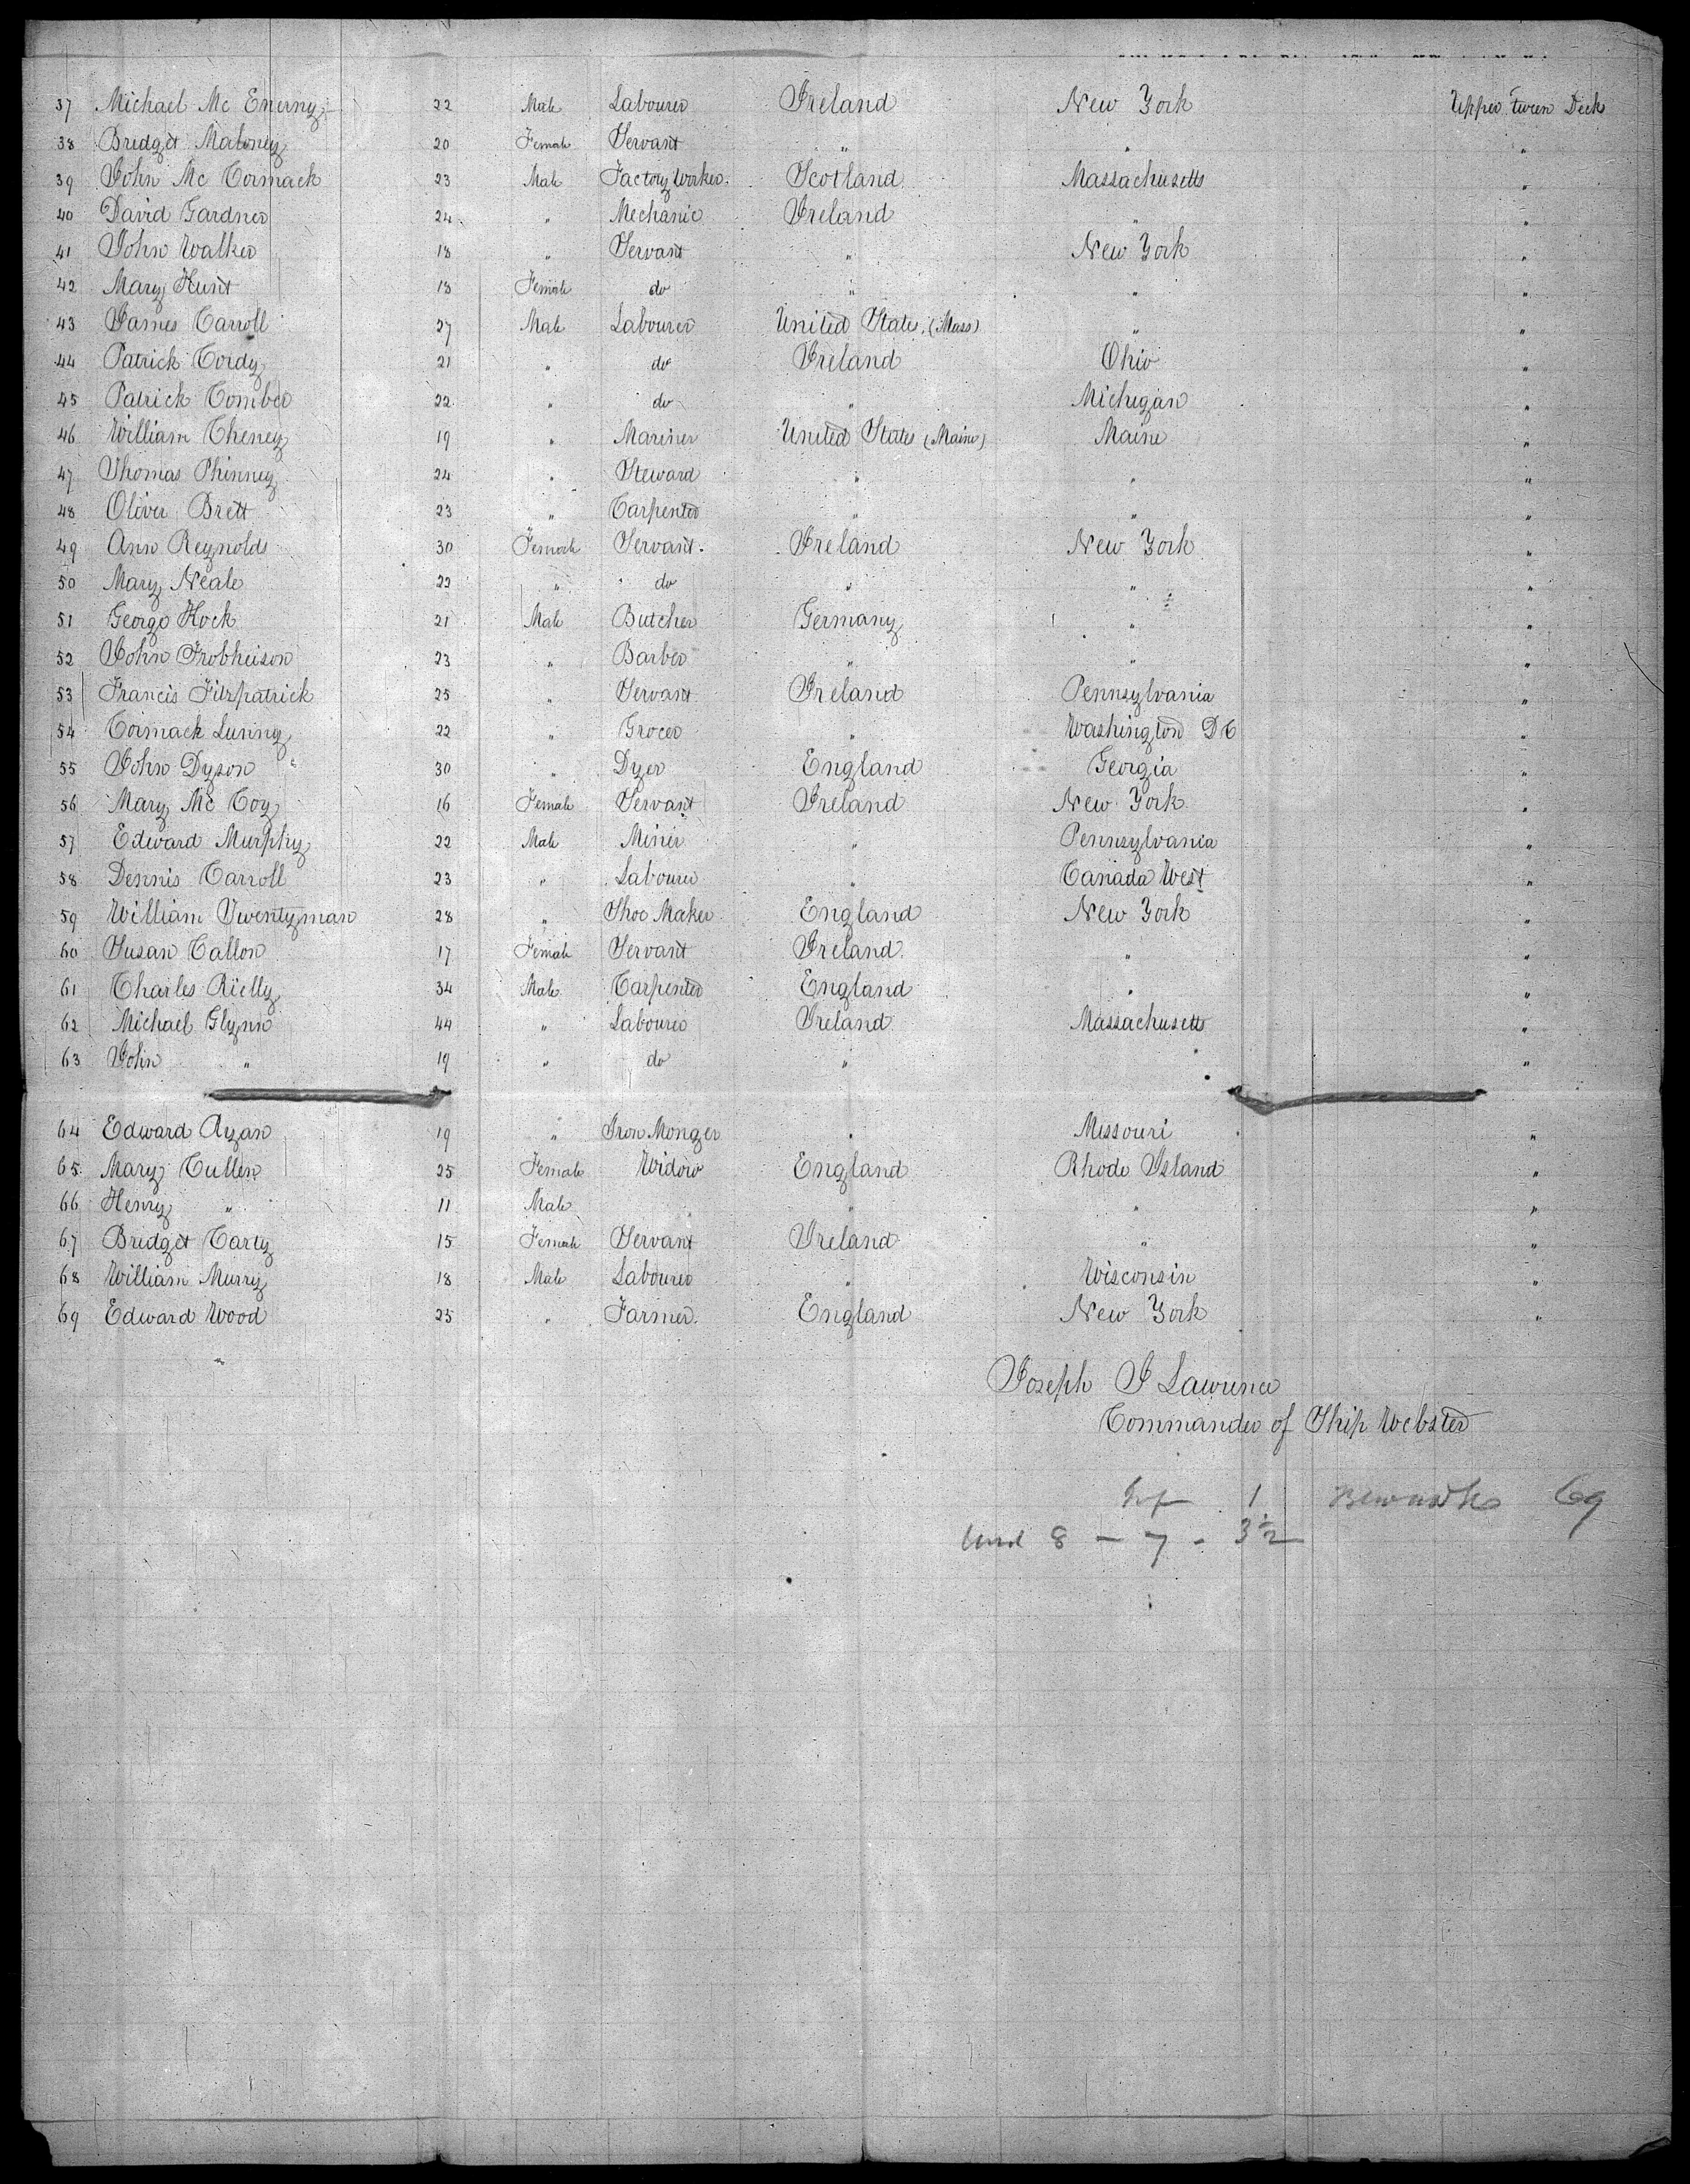 37 Michael Mc Enerny 22 Male Labourer Ireland New York Upper tween Deck
38 Bridget Maloney 20 Female Servant " " "
39 John Mc Cormack 23 Male Factory Worker. Scotland Massachusetts "
40 David Gardner 24 " Mechanic Ireland " "
41 John Walker 18 " Servant " New York "
42 Mary Hunt 18 Female do " " "
43 James Carroll 27 Male Labourer United States, (Mass) " "
44 Patrick Cordy 21 " do Ireland Ohio "
45 Patrick Comber 22 " do " Michigan "
46 William Cheney 19 " Mariner United States (Maine) Maine "
47 Thomas Phinney 24 " Steward " " "
48 Oliver Brett 23 " Carpenter " " "
49 Ann Reynolds 30 Female Servant. Ireland New York "
50 Mary Neale 22 " do " " "
51 George Hock 21 Male Butcher Germany " "
52 John 23 " Barber " " "
53 Francis Fitzpatrick 25 " Servant Ireland Pennsylvania "
54 Cormack 22 " Grocer " Washington DC "
55 John Dyson 30 " Dyer England Georgia "
56 Mary Mc Coy 16 Female Servant Ireland New York "
57 Edward Murphy 22 Male Miner " Pennsylvania "
58 Dennis Carroll 23 " Labourer " Canada West "
59 William Twentyman 28 " Shoe Maker England New York "
60 Susan Callon 17 Female Servant Ireland. " "
61 Charles Rielly 34 Male Carpenter England " "
62 Michael Glynn 44 " Labourer Ireland Massachusetts "
63 John " 19 " do " " "
64 Edward Ryan 19 " Iron Monger " Missouri "
65 Mary Cullen 25 Female Widow England Rhode Island "
66 Henry " 11 Male " " "
67 Bridget Carty 15 Female Servant Ireland " "
68 William Murry 18 Male Labourer " Wisconsin "
69 Edward Wood 25 " Farmer. England New York "
"
Joseph J Lawrence
Commander of Ship Webster
1 69
8 - 7 - 3½